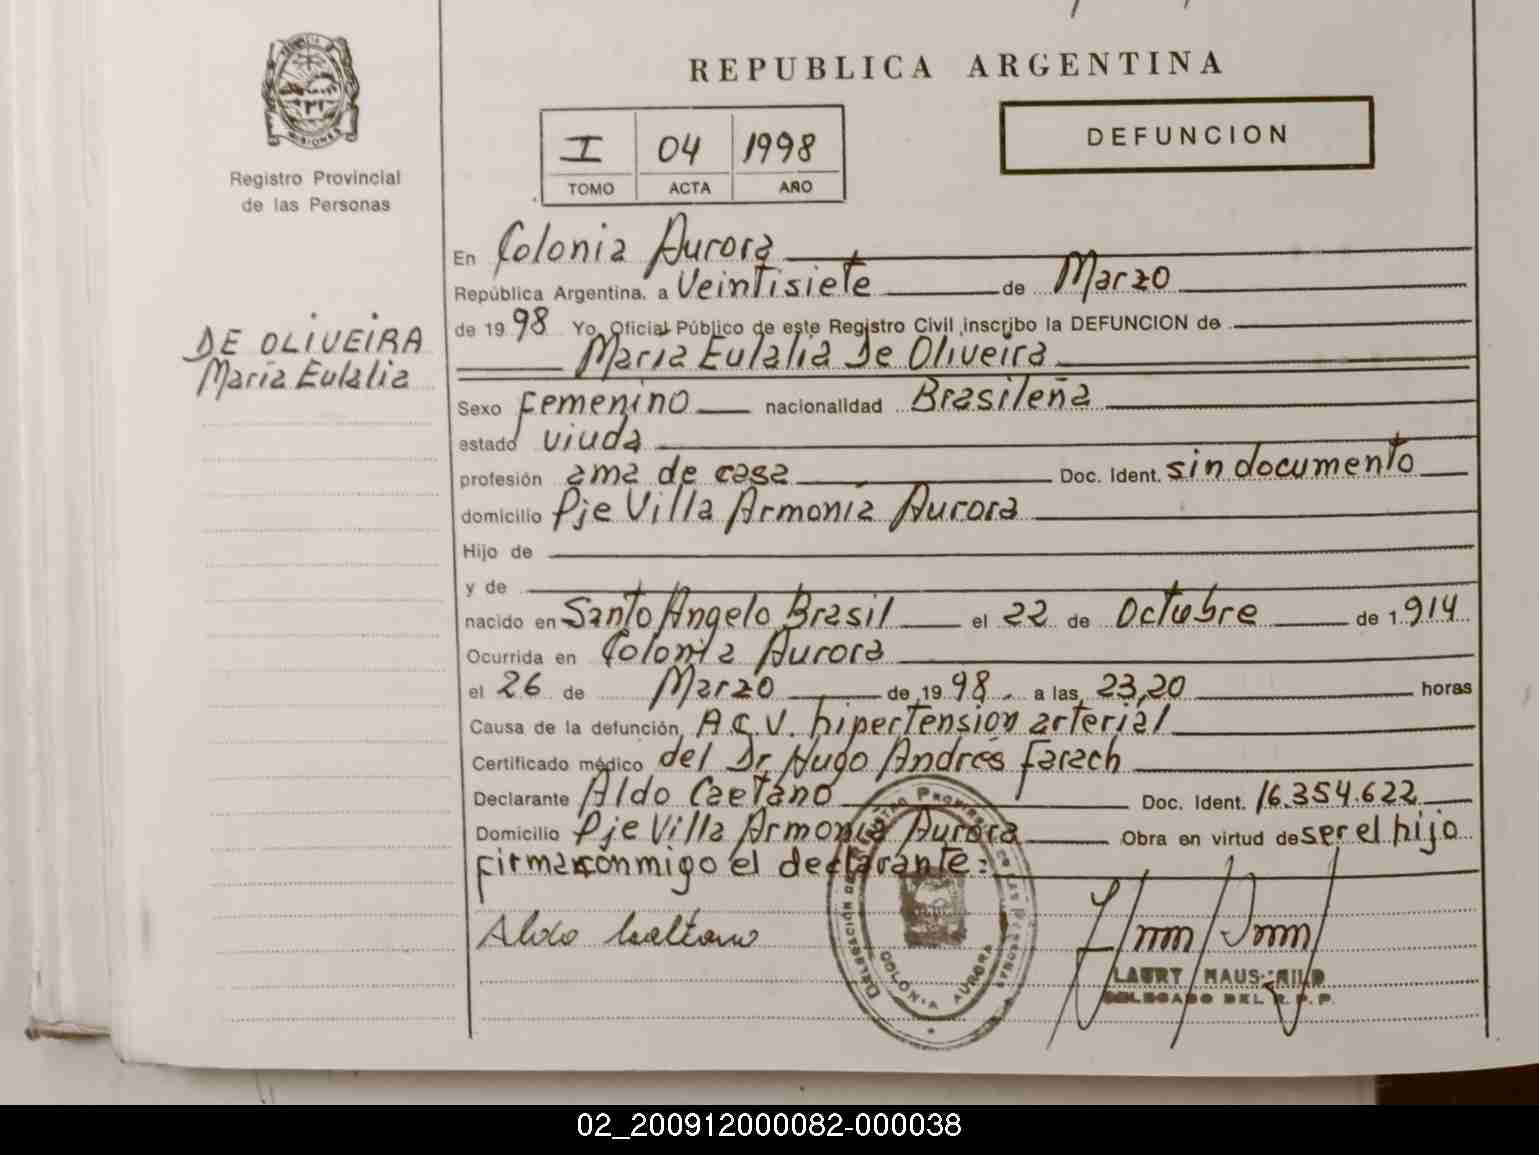 REPUBLICA ARGENTINA
MISIONES
Registro Provincial
de las Personas
I 04 1998
TOMO ACTA AÑO
DEFUNCION
DE OLIVEIRA
María Eulalia
En Colonia Aurora
República Argentina, a Veintisiete de Marzo
de 19 98 Yo, Oficial Público de este Registro Civil inscribo la DEFUNCION de
María Eulalia De Oliveira
Sexo femenino nacionalidad Brasileña
estado viuda
profesión ama de casa Doc. Ident. sin documento
domicilio Pje Villa Armonía Aurora
Hijo de
y de
nacido en Santo Angelo Brasil el 22 de Octubre de 1 914
Ocurrida en Colonia Aurora
el 26 de Marzo de 19 98. a las 23,20 horas
Causa de la defunción A.C.V. hipertension arterial
Certificado médico del Dr Hugo Andrés Farach
Declarante Aldo Caetano Doc. Ident. 16.354.622
Domicilio Pje Villa Armonía Aurora Obra en virtud de ser el hijo
firma conmigo el declarante:
Aldo Caetano
COLONIA AURORA
LAURY HAUS
DELEGADO DEL R.P.P.
02_200912000082-000038